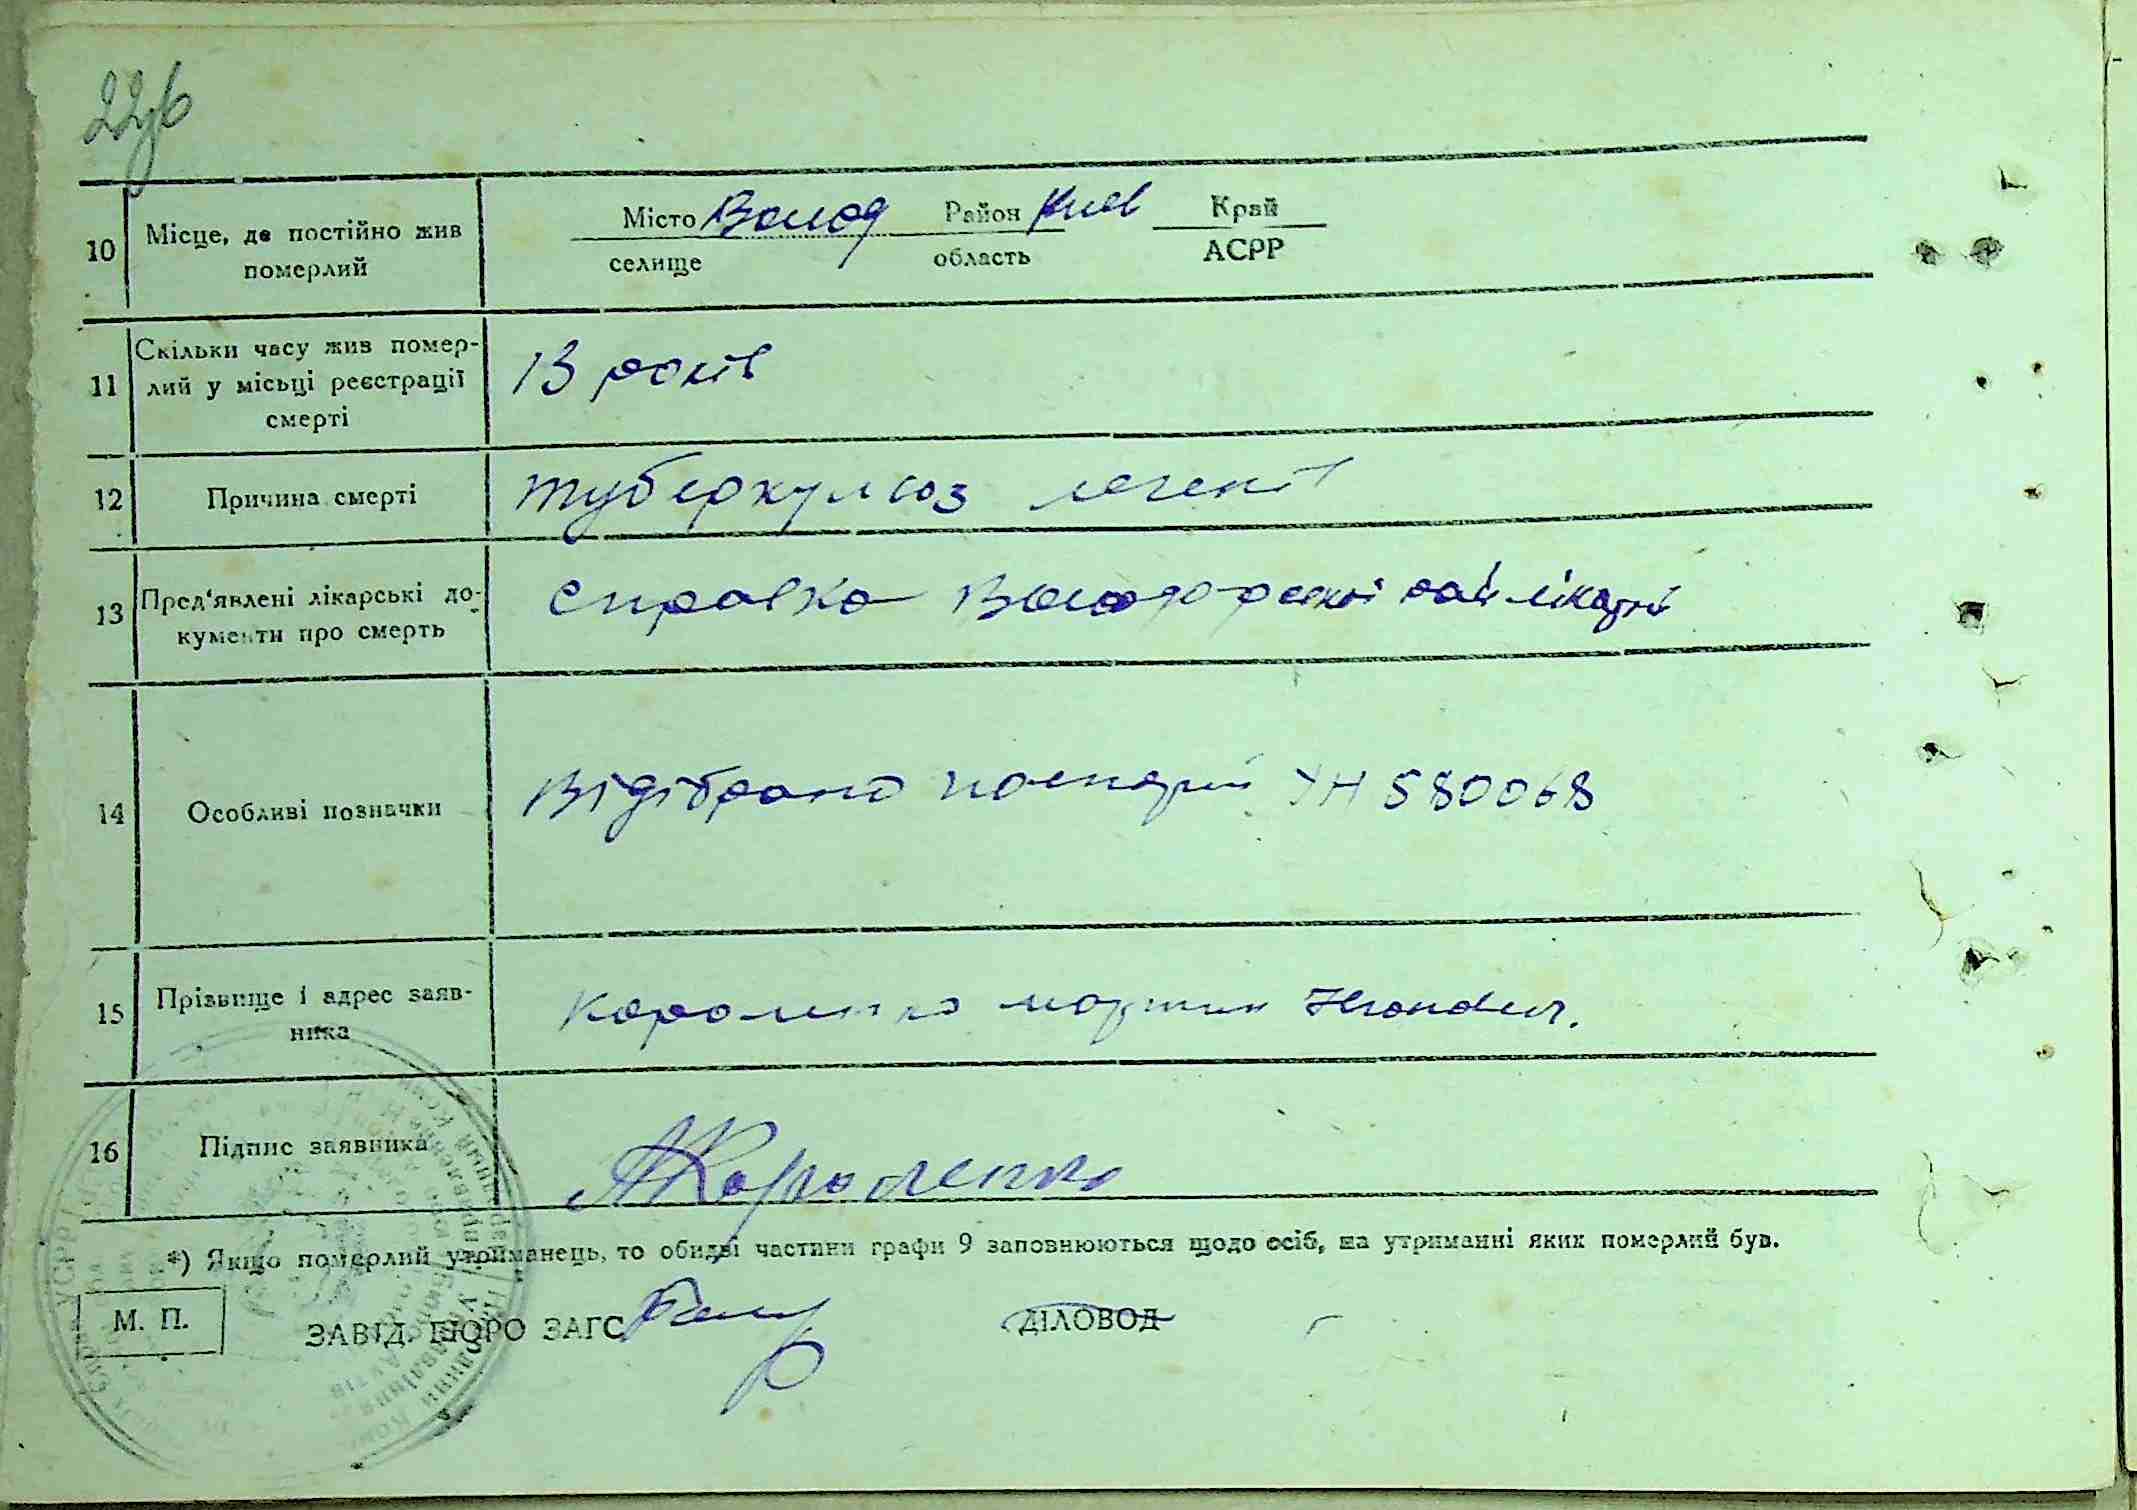 22зв
10 Місце, де постійно жив померлий
Місто Волод Район Киев Край
селище область АСРР
11 Скільки часу жив помер-
лий у місьці реєстрації
смерті
13 років
12 Причина смерті туберкульоз легенів
13 Пред'явлені лікарські до-
кументи про смерть
справка Володарської рай лікарні
14 Особливі позначки Відібрано паспорт УН 580068
15 Прізвище і адрес заяв-
ника
Короленко мартин
16 Підпис заявника
МКороленко
*) Якщо померлий утриманець, то обидві частини графи 9 заповнюються щодо осіб, на утриманні яких померлий був.
М. П. ЗАВІД. БЮРО ЗАГС ДІЛОВОД